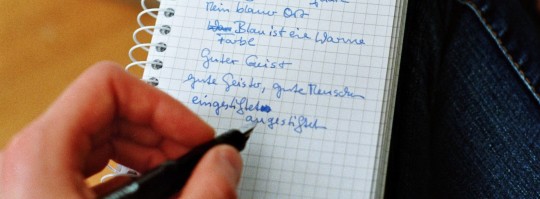 Mein blauer Ort
Blau ist eine warme
Farbe
Guter Geist
gute Geister, gute Menschen
eingestiftet
angestiftet